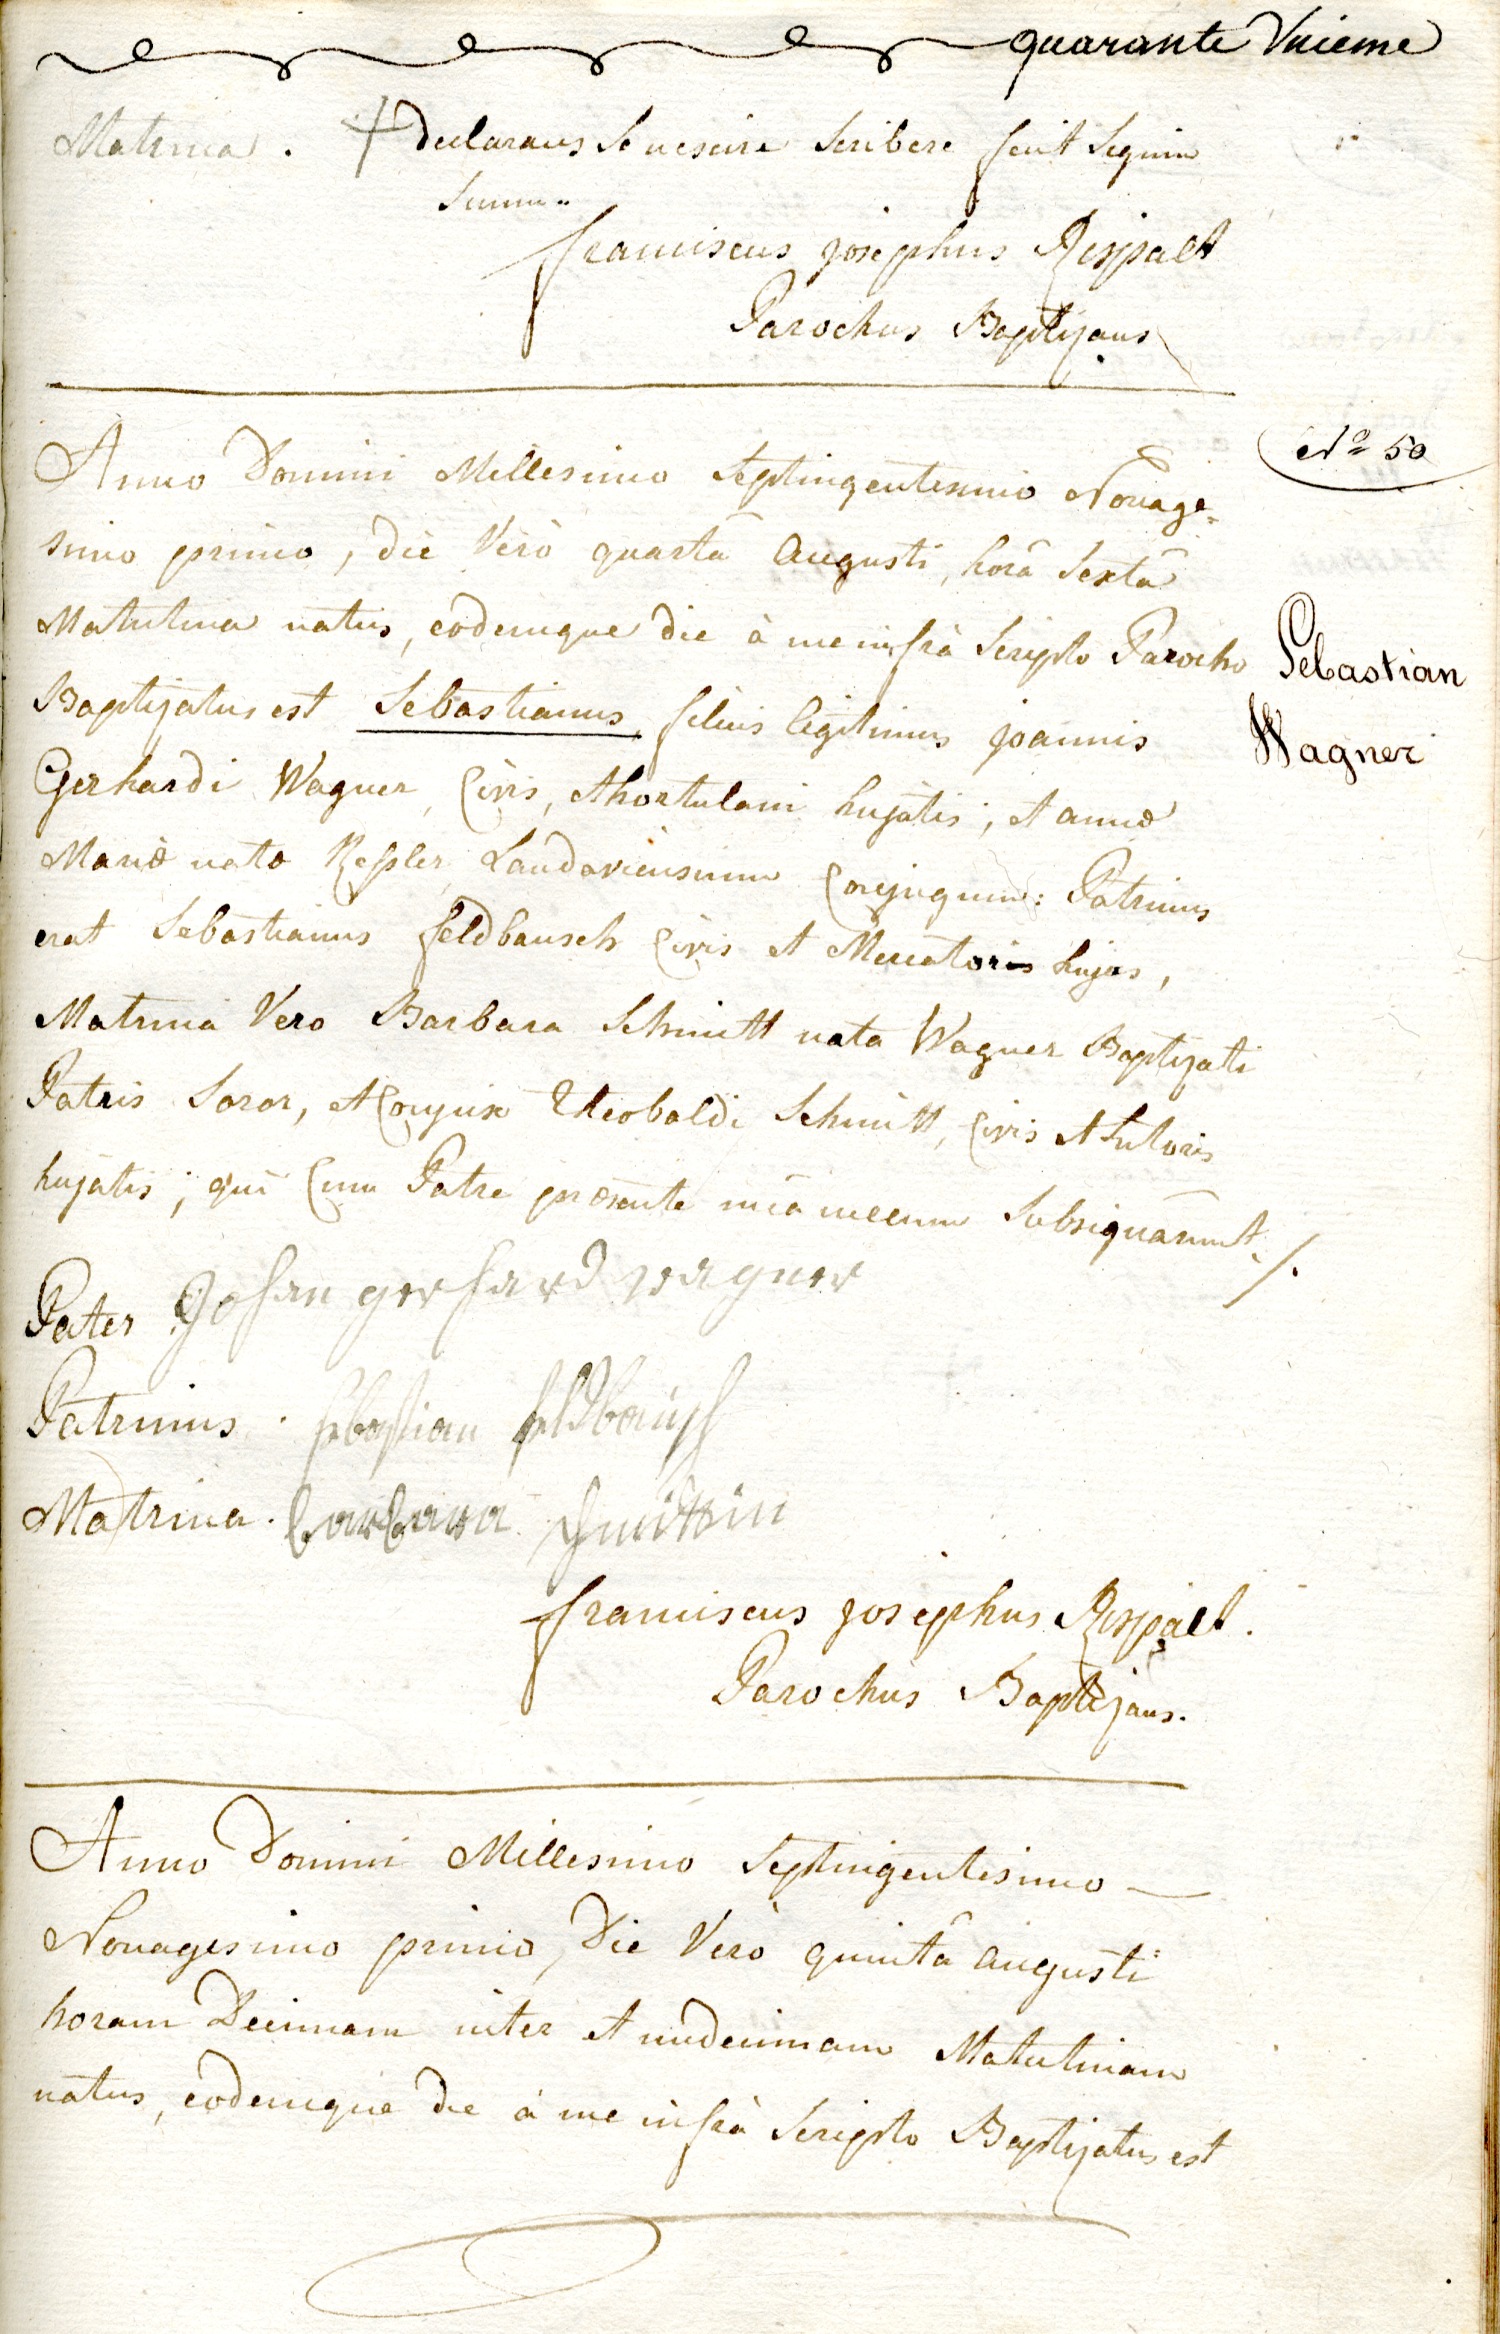 quarante Unieme
Matrina. + declarans se nescire scribere fecit signum
suum..
franciscus josephus Respalt
Parochus Baptizans
Nº 50
Anno Domini Millesimo Septingentesimo Nonage=
simo primo, die Verò quartâ Augusti, horâ Sextâ
Matutina natus, eodemque die à me infrà Scripto Parocho
Baptizatus est Sebastianus filius legitimus joannis
Sebastian
Wagner
Gerhardi Wagner, Civis, et hortulani hujatis, et annæ
Mariæ natæ Kessler, Landaviensium Conjugum: Patrinus
erat Sebastianus feldbausch Civis et Mercator hujas,
Matrina Vero Barbara Schmitt nata Wagner Baptizati
Patris Soror, et Conjux Theobaldi Schmitt, Civis et Sutoris
hujatis; qui Cum Patre præsente unà mecum Subsignârunt ./.
Pater Johan gerhard wagner
Patrinus. sebastian feldbausch
Matrina. barbara schmittin
franciscus josephus Respalt.
Parochus Baptizans.
Anno Domini Millesimo Septingentesimo —
Nonagesimo primo, Die Verò quintâ augusti
horam Decimam inter et undecimam Matutinam
natus, eodemque die à me infrà Scripto Baptizatus est